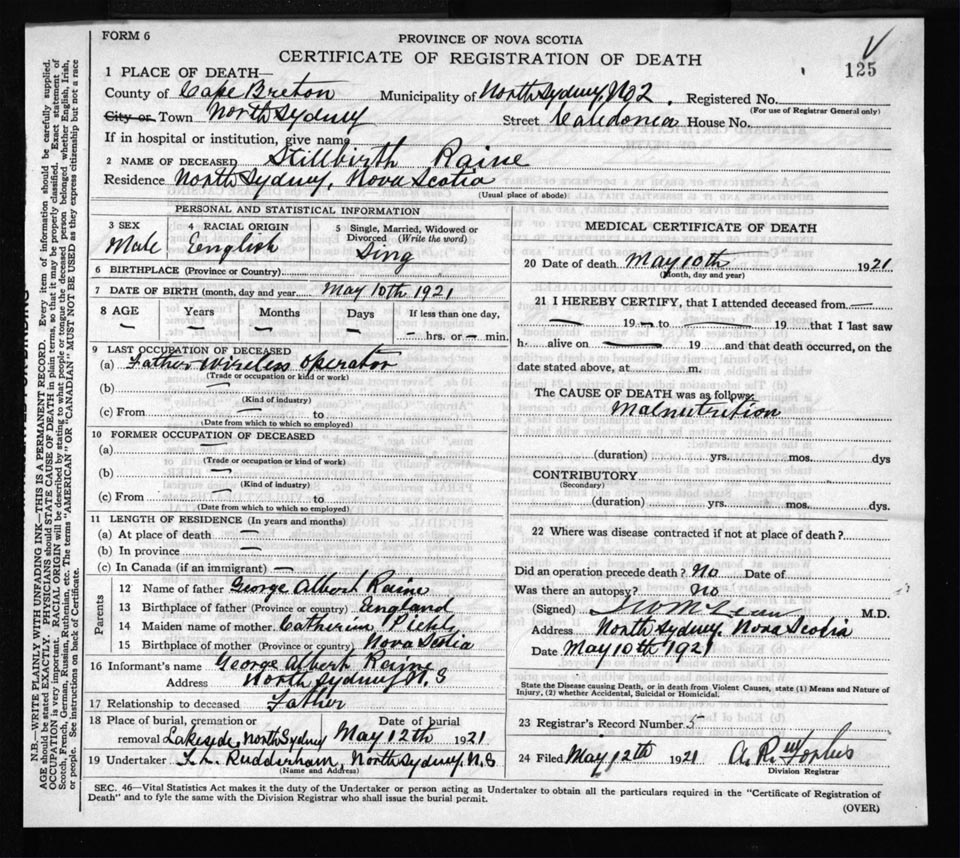 FORM 6
PROVINCE OF NOVA SCOTIA
CERTIFICATE OF REGISTRATION OF DEATH
125
1 PLACE OF DEATH—
County of Cape Breton Municipality of North Sydney, No 2. Registered No.
(For use of Registrar General only)
City or Town North Sydney Street Caledonia House No.
If in hospital or institution, give name
2 NAME OF DECEASED Stillbirth Raine
Residence North Sydney, Nova Scotia
(Usual place of abode)
PERSONAL AND STATISTICAL INFORMATION
3 SEX 4 RACIAL ORIGIN 5 Single, Married, Widowed or Divorced (Write the word)
Male English Sing
6 BIRTHPLACE (Province or Country)
7 DATE OF BIRTH (month, day and year) May 10th 1921
8 AGE Years Months Days If less than one day,
— — — — — hrs. or — min.
9 LAST OCCUPATION OF DECEASED
(a) Father Wireless Operator
(Trade or occupation or kind or work)
(b) —
(Kind of industry)
(c) From — to
(Date from which to which so employed)
10 FORMER OCCUPATION OF DECEASED
(a) —
(Trade or occupation or kind of work)
(b) —
(Kind of industry)
(c) From — to
(Date from which to which so employed)
11 LENGTH OF RESIDENCE (In years and months)
(a) At place of death —
(b) In province —
(c) In Canada (if an immigrant) —
Parents
12 Name of father George Albert Raine
13 Birthplace of father (Province or country) England
14 Maiden name of mother Catherine
15 Birthplace of mother (Province or country) Nova Scotia
16 Informant's name George Albert Raine
Address North Sydney N.S
17 Relationship to deceased Father
18 Place of burial, cremation or Date of burial
removal Lakeside, North Sydney May 12th 1921
19 Undertaker Rudderham, North Sydney, N.S
(Name and Address)
MEDICAL CERTIFICATE OF DEATH
20 Date of death May 10th 1921
(Month, day and year)
21 I HEREBY CERTIFY, that I attended deceased from —
— 19 — to — 19 that I last saw
h alive on — 19 and that death occurred, on the
date stated above, at m.
The CAUSE OF DEATH was as follows:
Malnutrition
(duration) yrs. mos. dys
CONTRIBUTORY
(Secondary)
(duration) yrs. mos. dys.
22 Where was disease contracted if not at place of death?
Did an operation precede death? No Date of
Was there an autopsy? No
(Signed) M.D.
Address North Sydney. Nova Scotia
Date May 10th 1921
State the Disease causing Death, or in death from Violent Causes, state (1) Means and Nature of
Injury, (2) whether Accidental, Suicidal or Homicidal.
23 Registrar's Record Number 5
24 Filed May 12th 1921 A. R.
Division Registrar
SEC. 46—Vital Statistics Act makes it the duty of the Undertaker or person acting as Undertaker to obtain all the particulars required in the "Certificate of Registration of
Death" and to fyle the same with the Division Registrar who shall issue the burial permit.
(OVER)
N.B.—WRITE PLAINLY WITH UNFADING INK—THIS IS A PERMANENT RECORD. Every item of information should be carefully supplied.
AGE should be stated EXACTLY. PHYSICIANS should STATE CAUSE OF DEATH in plain terms, so that it may be properly classified. Exact statement of
OCCUPATION is very important. RACIAL ORIGIN will be described by stating to what people or tongue the deceased person belonged whether English, Irish,
Scotch, French, German, Russian, Ruthenian, etc. The terms "AMERICAN" OR "CANADIAN" MUST NOT BE USED as they express citizenship but not a race
or people. See instructions on back of Certificate.